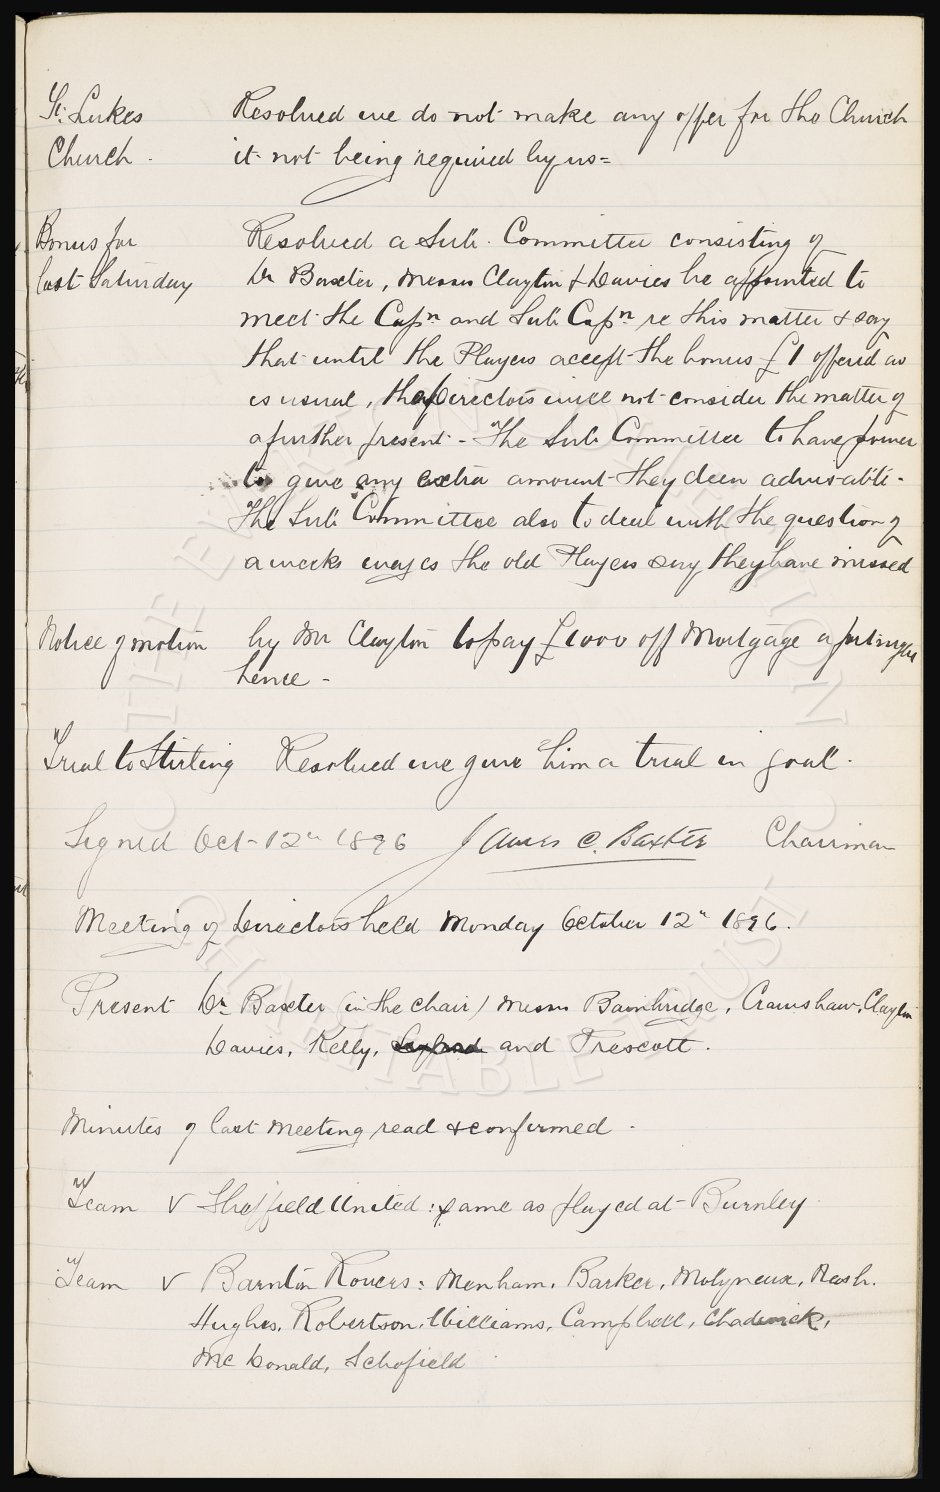 St. Lukes Resolved we do not make any offer for the Church
Church. it not being required by us =
Bonus for Resolved a Sub. Committee consisting of
last Saturday Dr Baxter, Messrs Clayton & Davies be appointed to
meet the Capn and Sub Capn re this matter & say
that until the Players accept the bonus £1 offered as
is usual, the Directors will not consider the matter of
a further present - The Sub Committee to have power
to give any extra amount they deem advisable -
The Sub Committee also to deal with the question of
a weeks wages the old Players say they have missed
Notice of motion by Mr Clayton to pay £1000 off Mortgage a fortnight
hence -
Trial to Stirling Resolved we give him a trial in goal.
Signed Oct 12th 1896 James C. Baxter Chairman
Meeting of Directors held Monday October 12th 1896.
Present Dr Baxter (in the chair) Messrs Bainbridge, Crawshaw, Clayton
Davies, Kelly, and Prescott.
Minutes of last meeting read & confirmed.
Team v Sheffield United: same as played at Burnley
Team v Barnton Rovers: Menham, Barker, Molyneux, Nash.
Hughes, Robertson, Williams, Campbell, Chadwick,
McDonald, Schofield
THE EVERTON COLLECTION
CHARITABLE TRUST